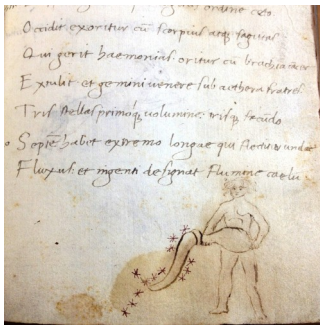 ordine caeo
Occidit exoritur cū scorpius atq; sagittas
Qui gerit haemonias. oritur cū brachia
Extulit et gemini venere sub aethera fratres
Tris stellas primoq; volumine: tris q; secūdo
Septē habet extremo longae qui flectitur undae
Fluxus: et ingenti designat flumine caelū